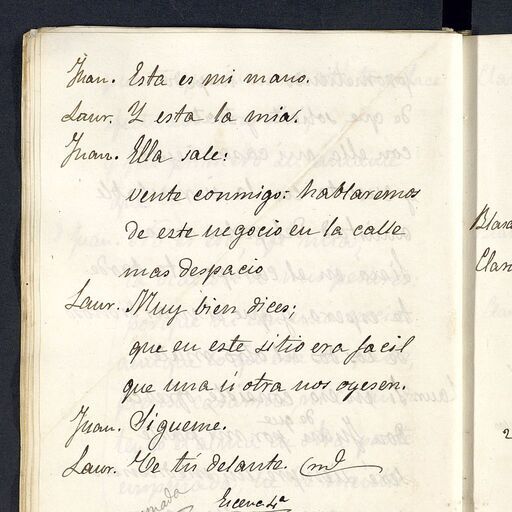 Juan. Esta es mi mano.
Laur. Y esta la mia.
Juan. Ella sale:
vente conmigo: hablaremos
de este negocio en la calle
mas despacio
Laur. Muy bien dices;
que en este sitio era facil
que una ú otra nos oyesen.
Juan. Sígueme.
Laur. Ve tú delante.
Escena 4ª
Blasa
Clar
2